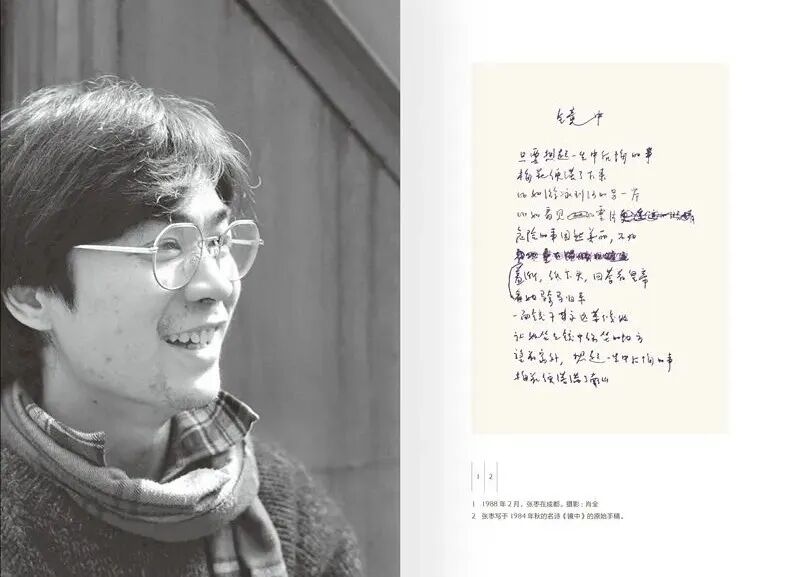 镜中
只要想起一生中后悔的事
梅花便落了下来
比如游泳到河的另一岸
比如看见
危险的事固然美丽,不如
羞惭,低下头,回答着皇帝
看她骑马归来
一面镜子永远等候她
让她坐到镜中常坐的地方
望着窗外,想起一生中后悔的事
梅花便落满了南山
1 2
1 1988年2月,张枣在成都。摄影:肖全
2 张枣写于1984年秋的名诗《镜中》的原始手稿。